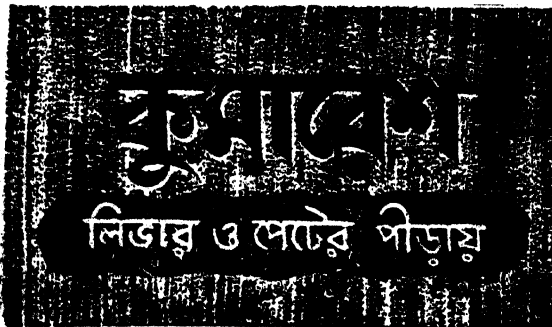 কুমারেশ
লিভার ও পেটের পীড়ায়